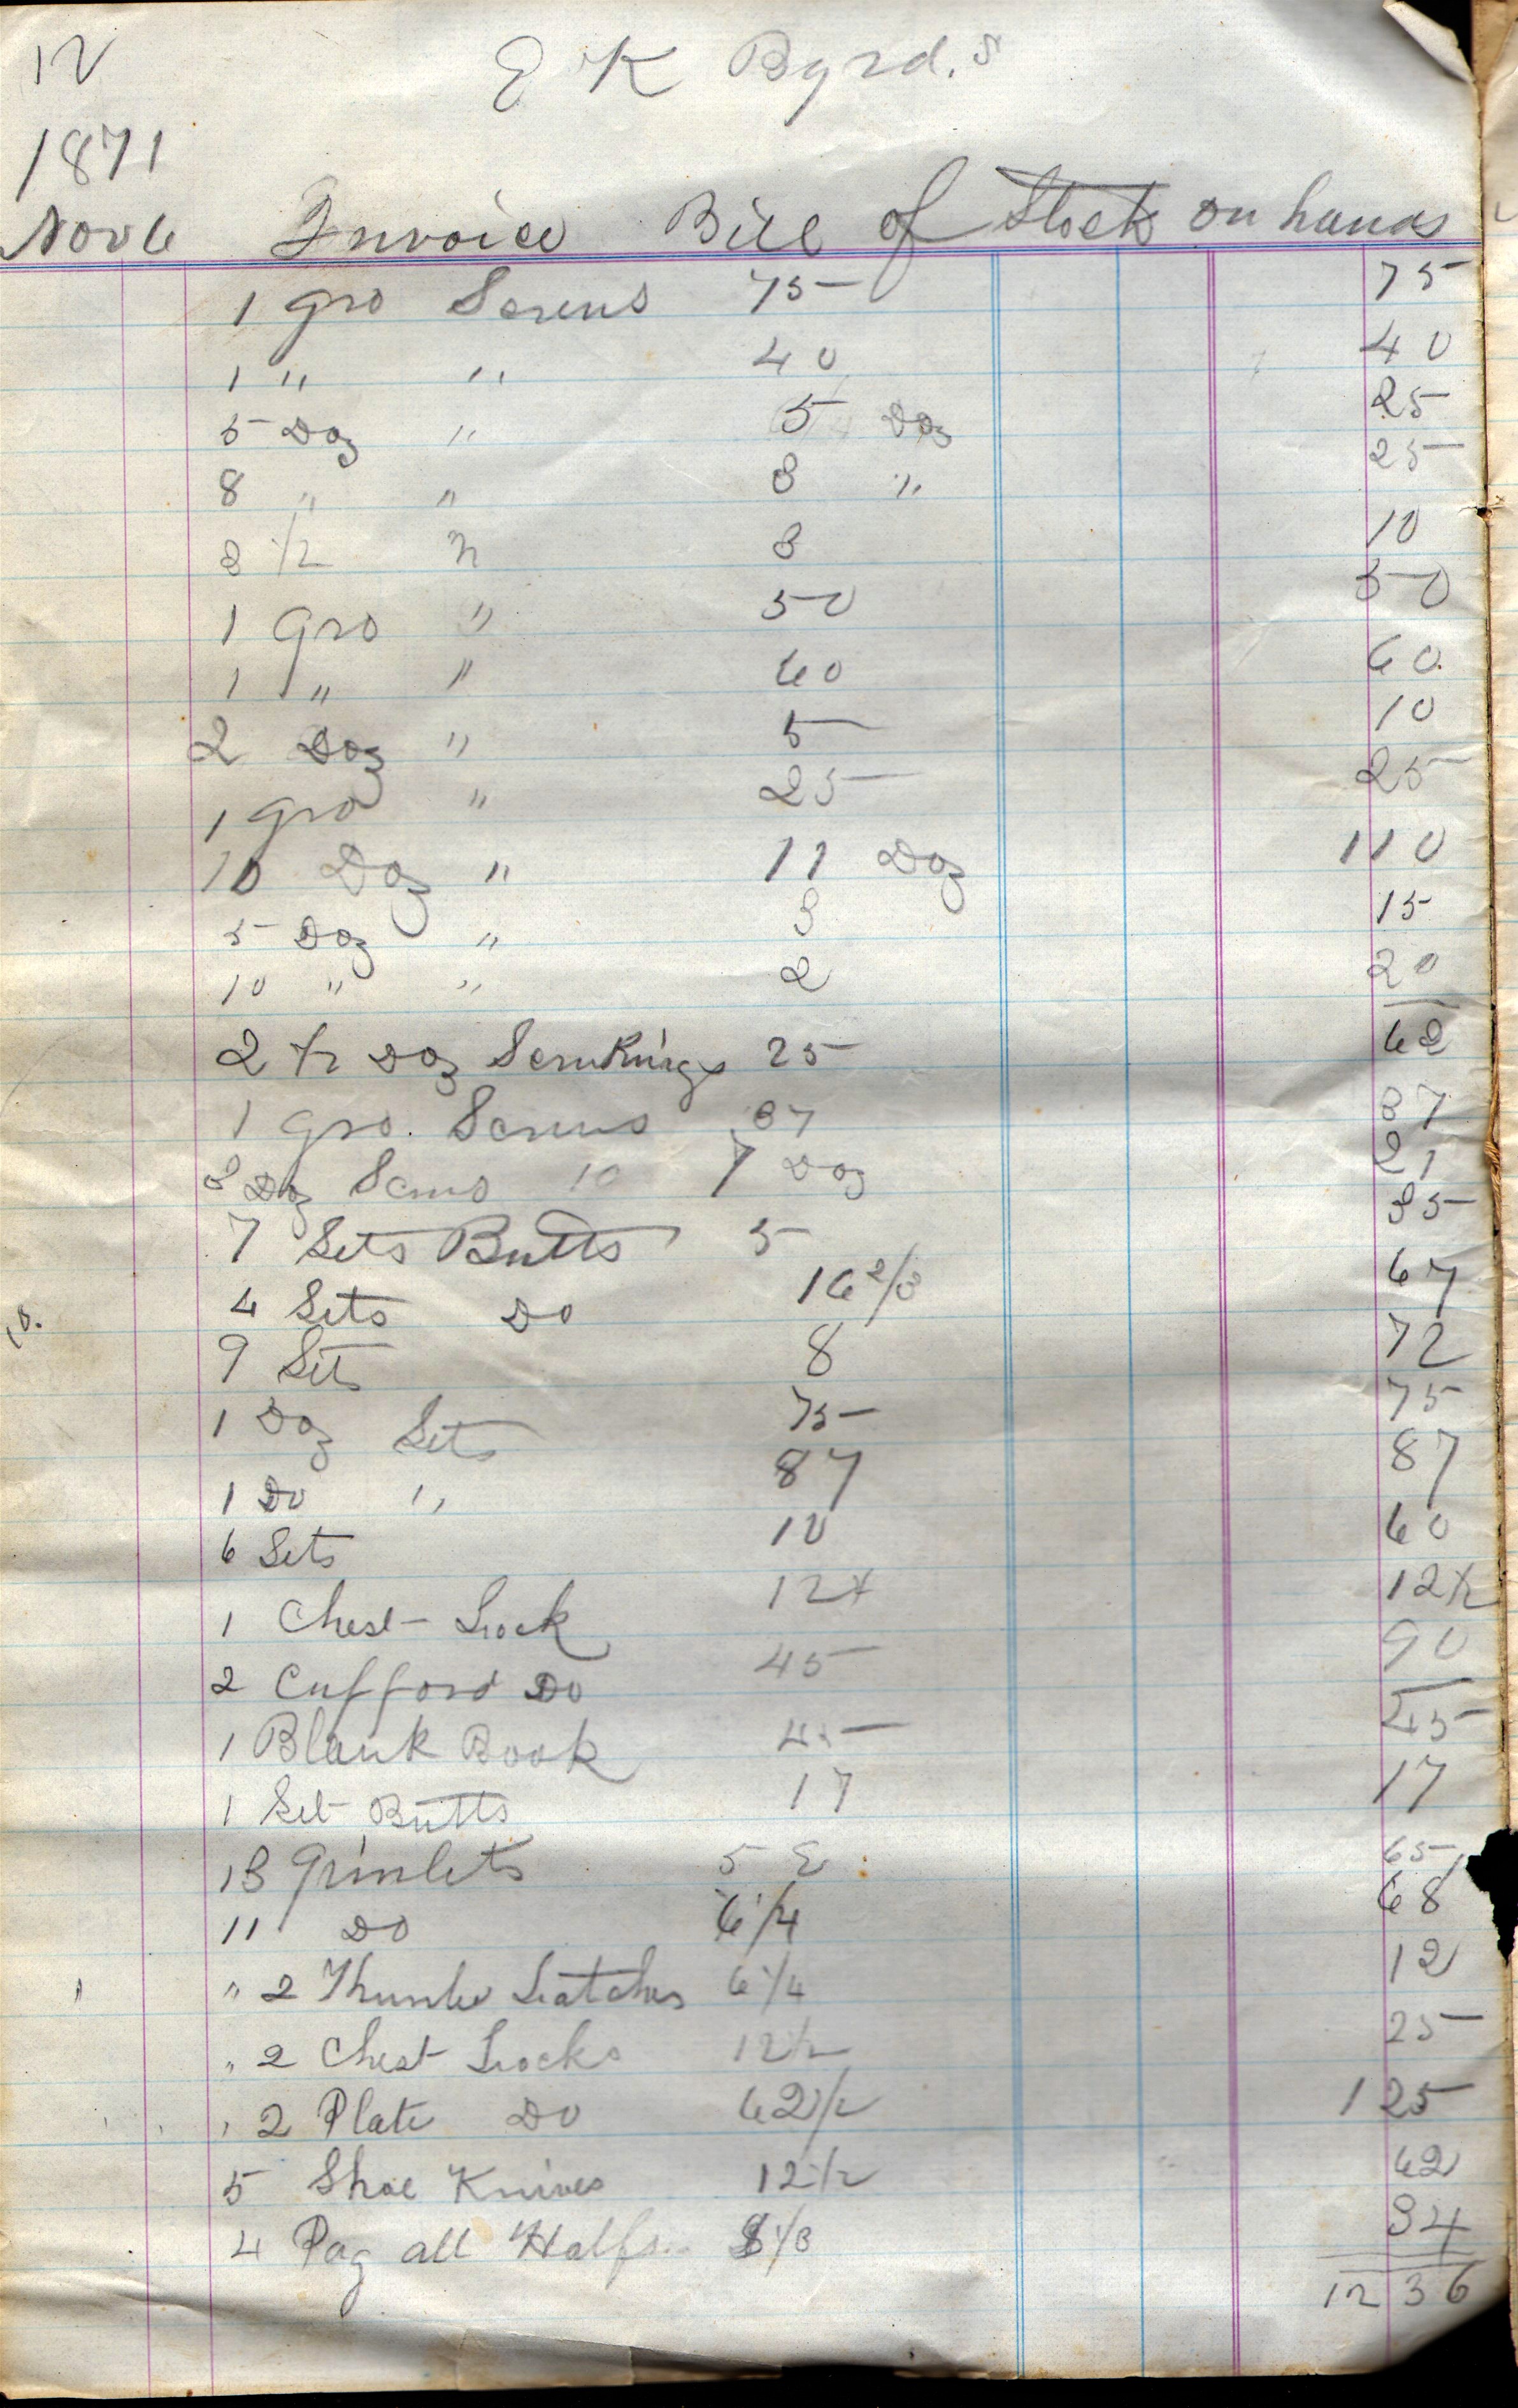 12
E K Byrd.s
1871
Nov 6 Invoice Bill of Stock on hands
1 gro Screws 75 75
1 " " 40 40
5 Doz " 5 Doz 25
8 " " 3 " 25
3 1/2 " 3 10
1 Gro " 50 50
1 " " 60 60
2 Doz " 5 10
1 gro " 25 25
10 Doz " 11 Doz 110
5 Doz " 3 15
10 " " 2 20
2 1/2 Doz Scru Rings 25 62
1 gro. Screws 37 37
3 Doz Scrus 10 7 Doz 21
7 Sets Butts 5 35
4 Sets Do 16 2/3 67
9 Sets 8 72
1 Doz Sets 75 75
1 Do " 87 87
6 Sets 10 60
1 Chest Lock 12 1/2
2 Cufford Do 45 90
1 Blank Book 45 45
1 Set Butts 17 17
13 Gimlets 5 65
11 Do 6 1/4 68
" 2 Thumb Latches 6 1/4 12
" 2 Chest Locks 12 1/2 25
" 2 Plate Do 62 1/2 1 25
5 Shoe Knives 12 1/2 62
4 Pag all Halfs 8 1/3 34
12 36